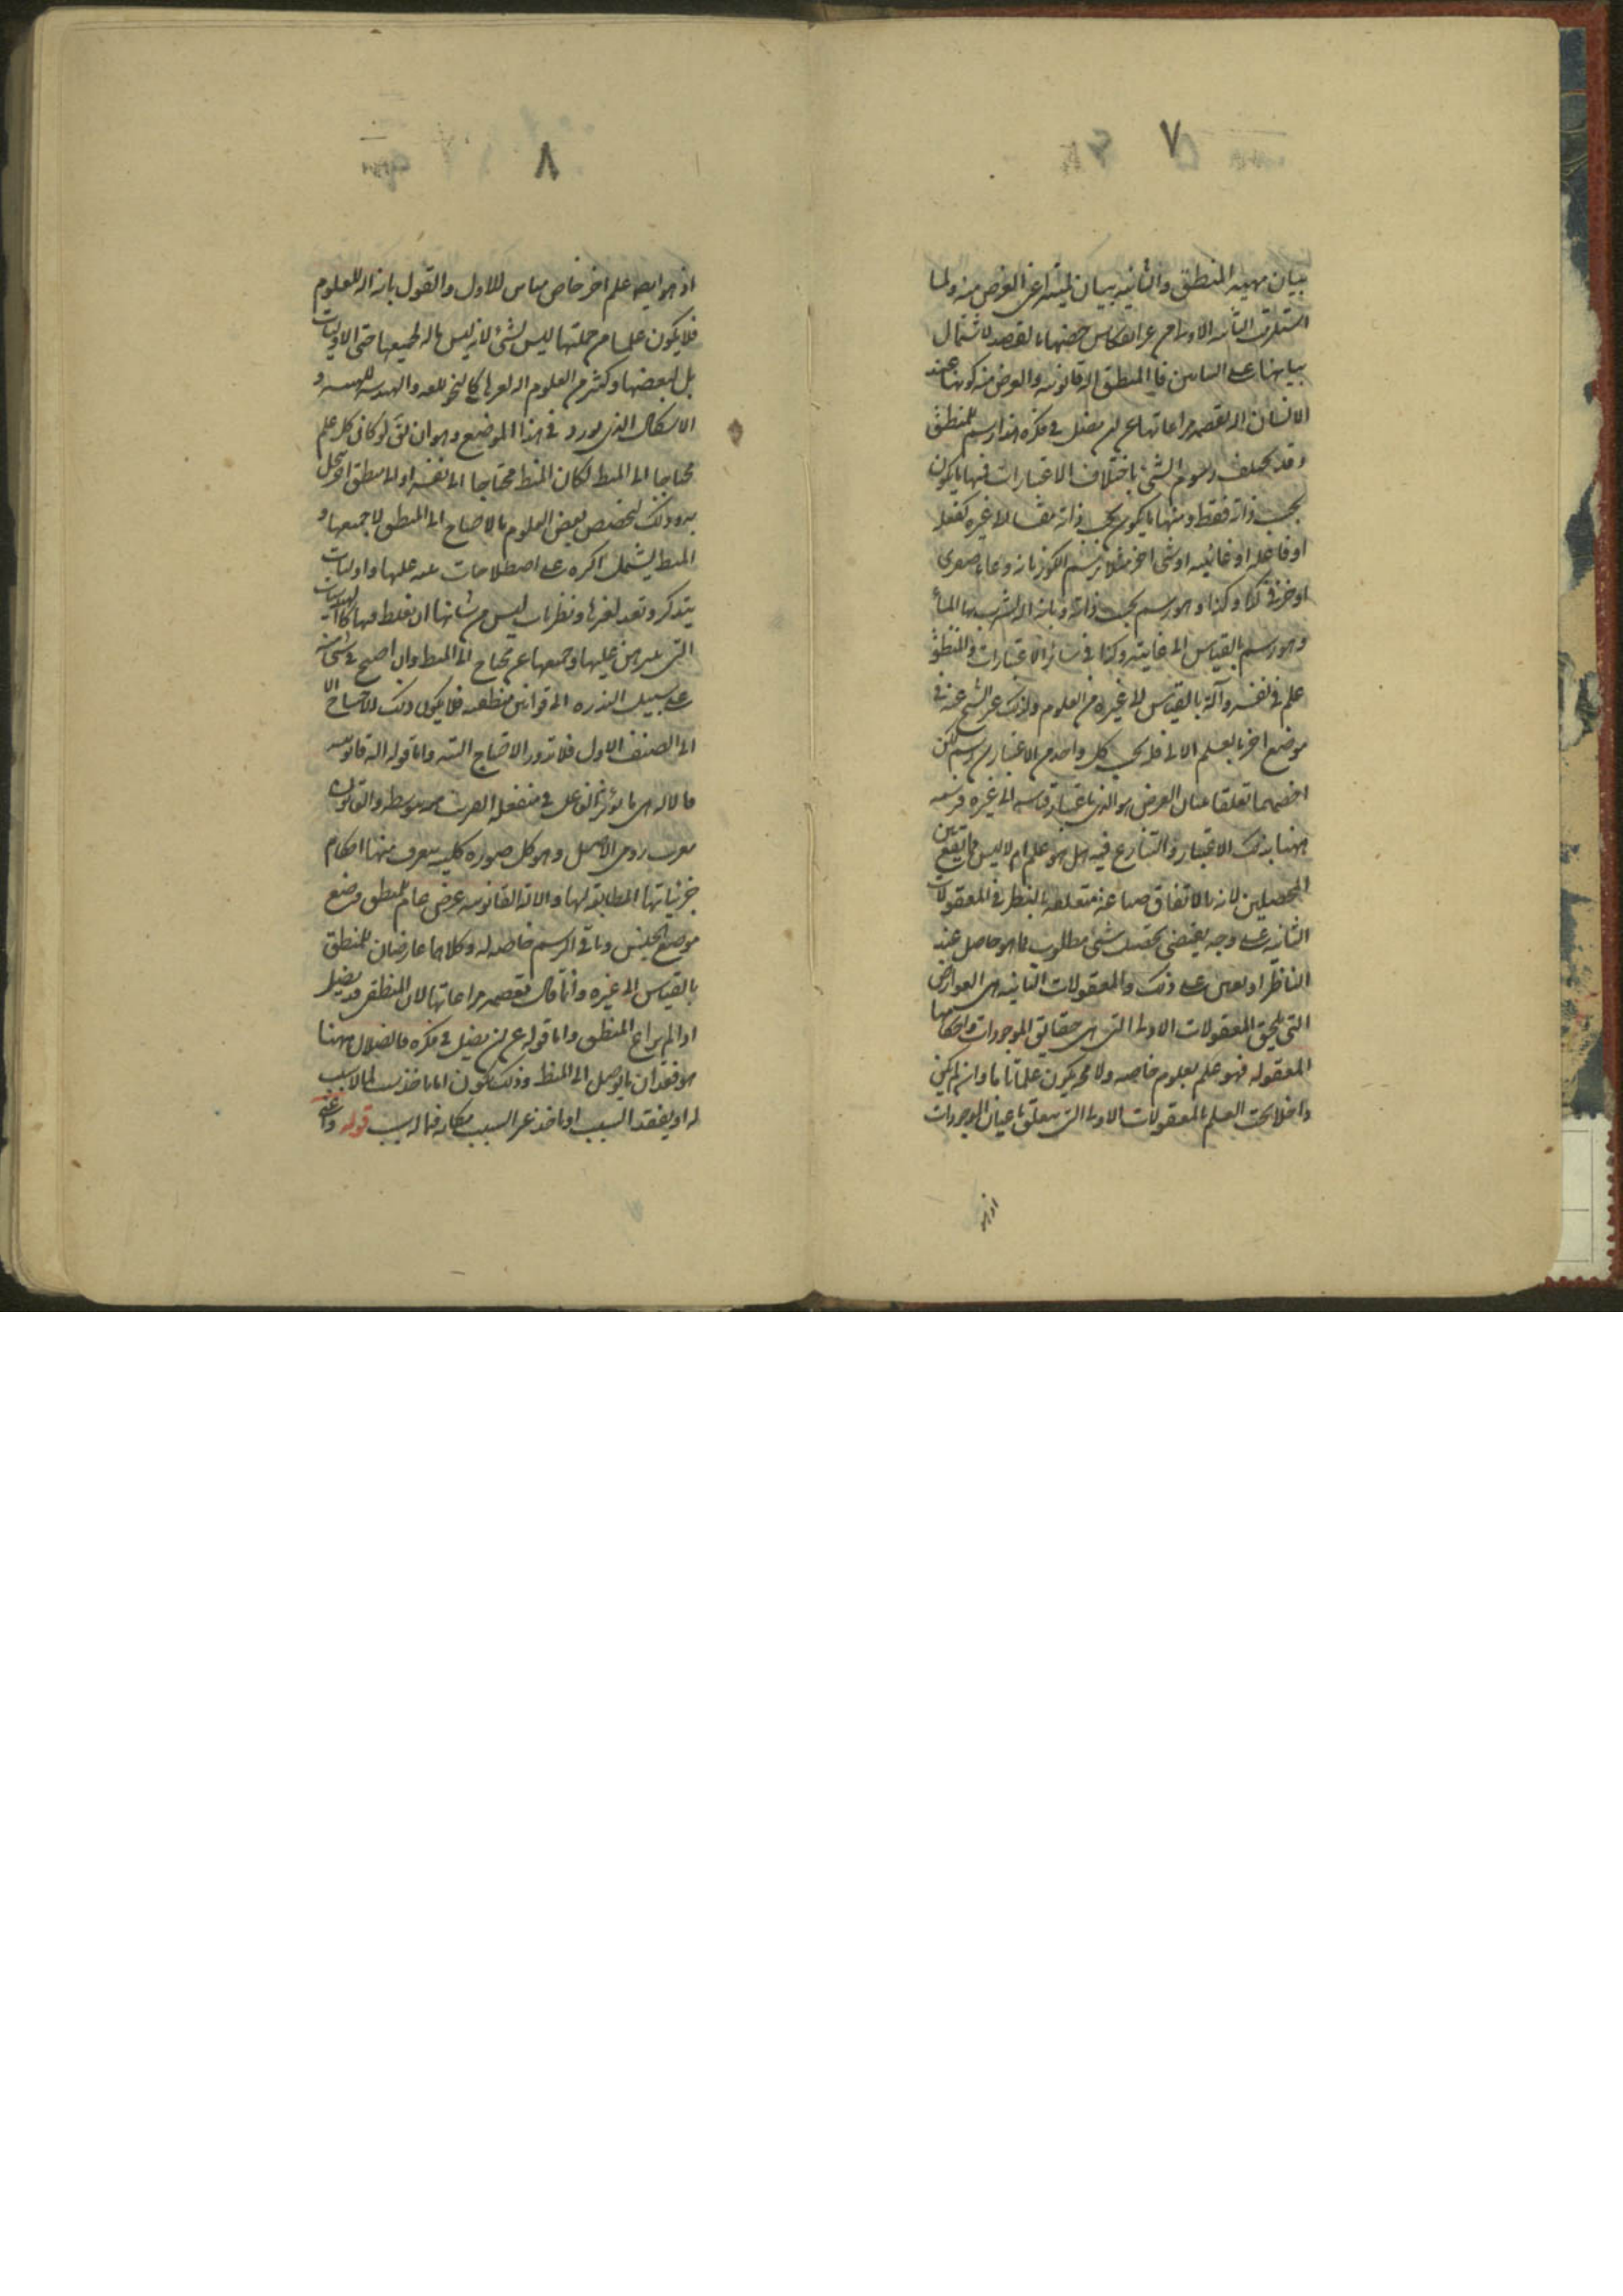 ٧
بيان مهية المنطق والثانية بيان لميته اعنى الغرض منه ولما
استلزمت الثانية الاولى من غير انعكاس خصها بالقصد لاشتمال
بيانها على البيانين فالمنطق آلة قانونية والغرض منه كونها عند
الانسان آلة تعصمه مراعاتها عن ان يضل فى فكره هذا رسم للمنطق
وقد تختلف رسوم الشئ باختلاف الاعتبارات فمنها ما يكون
بحسب ذاته فقط ومنها ما يكون بحسب ذاته مقيسا الى غيره كفعله
او فاعله او غايته او شئ آخر مثلا يرسم الكوز بانه وعاء صفرى
او خزفى كذا وكذا وهو رسم بحسب ذاته وبانه آلة يشرب بها الماء
وهو رسم بالقياس الى غايته وكذا فى سائر الاعتبارات والمنطق
علم فى نفسه وآلة بالقياس الى غيره من العلوم ولذلك عبر الشيخ عنه فى
موضع آخر بالعلم الآلى فله بحسب كل واحد من الاعتبارين رسم لكن
اخصهما تعلقا ببيان الغرض هو الذى باعتبار قياسه الى غيره فرسمه
ههنا بذلك الاعتبار والتنازع فيه هل هو علم ام لا ليس مما يقع بين
المحصلين لانه بالاتفاق صناعة متعلقة بالنظر فى المعقولات
الثانية على وجه يقتضى تحصيل شئ مطلوب مما هو حاصل عند
الناظر او يعين على ذلك والمعقولات الثانية هى العوارض
التى تلحق المعقولات الاولى التى هى حقايق الموجودات واحكامها
المعقولة فهو علم بمعلوم خاص ولا محالة يكون علما ما وان لم يكن
داخلا تحت العلم بالمعقولات الاولى التى تتعلق باعيان الموجودات
اذ هو
٨
اذ هو ايضا علم اخر خاص مباين للاول والقول بانه آلة للعلوم
فلا يكون علما من جملتها ليس بشئ لانه ليس بآلة لجميعها حتى الاوليات
بل لبعضها وكثير من العلوم آلة لغيرها كالنحو للغة والهندسة للهيئة و
الاشكال الذى يورد فى هذا الموضع وهو ان يق لو كان كل علم
محتاجا الى المنطق لكان المنطق محتاجا الى نفسه او الى منطق آخر ينحل
به وذلك لتخصيص بعض العلوم بالاحتياج الى المنطق لا جميعها و
المنطق يشتمل اكثره على اصطلاحات ينبه عليها واوليات
يتذكر وتعد لغيرها ونظريات ليس من شانها ان يغلط فيها كالهندسيات
التى يبرهن عليها وجميعها غير محتاج الى المنطق وان احتيج فى شئ منه
على سبيل الندرة الى قوانين منطقية فلا يكون ذلك الاحتياج الا
الى الصنف الاول فلا يدور الاحتياج اليه واما قوله آلة قانونية
فالآلة هى ما يؤثر الفاعل فى منفعله القريب منه بتوسطه والقانون
معرب رومى الاصل وهو كل صورة كلية يتعرف منها احكام
جزئياتها المطابقة لها والآلة القانونية عرض عام للمنطق وضع
موضع الجنس وباقى الرسم خاصة له وكلاهما عارضان للمنطق
بالقياس الى غيره وانما قال تعصمه مراعاتها لان المنطقى قد يضل
اذا لم يراع المنطق واما قوله عن ان يضل فى فكره فالضلال ههنا
هو فقدان ما يوصل الى المنطق وذلك يكون اما باخذ سبب لما لا سبب
له او بفقد السبب او باخذ غير السبب مكانه فيما له سبب قوله واعنى